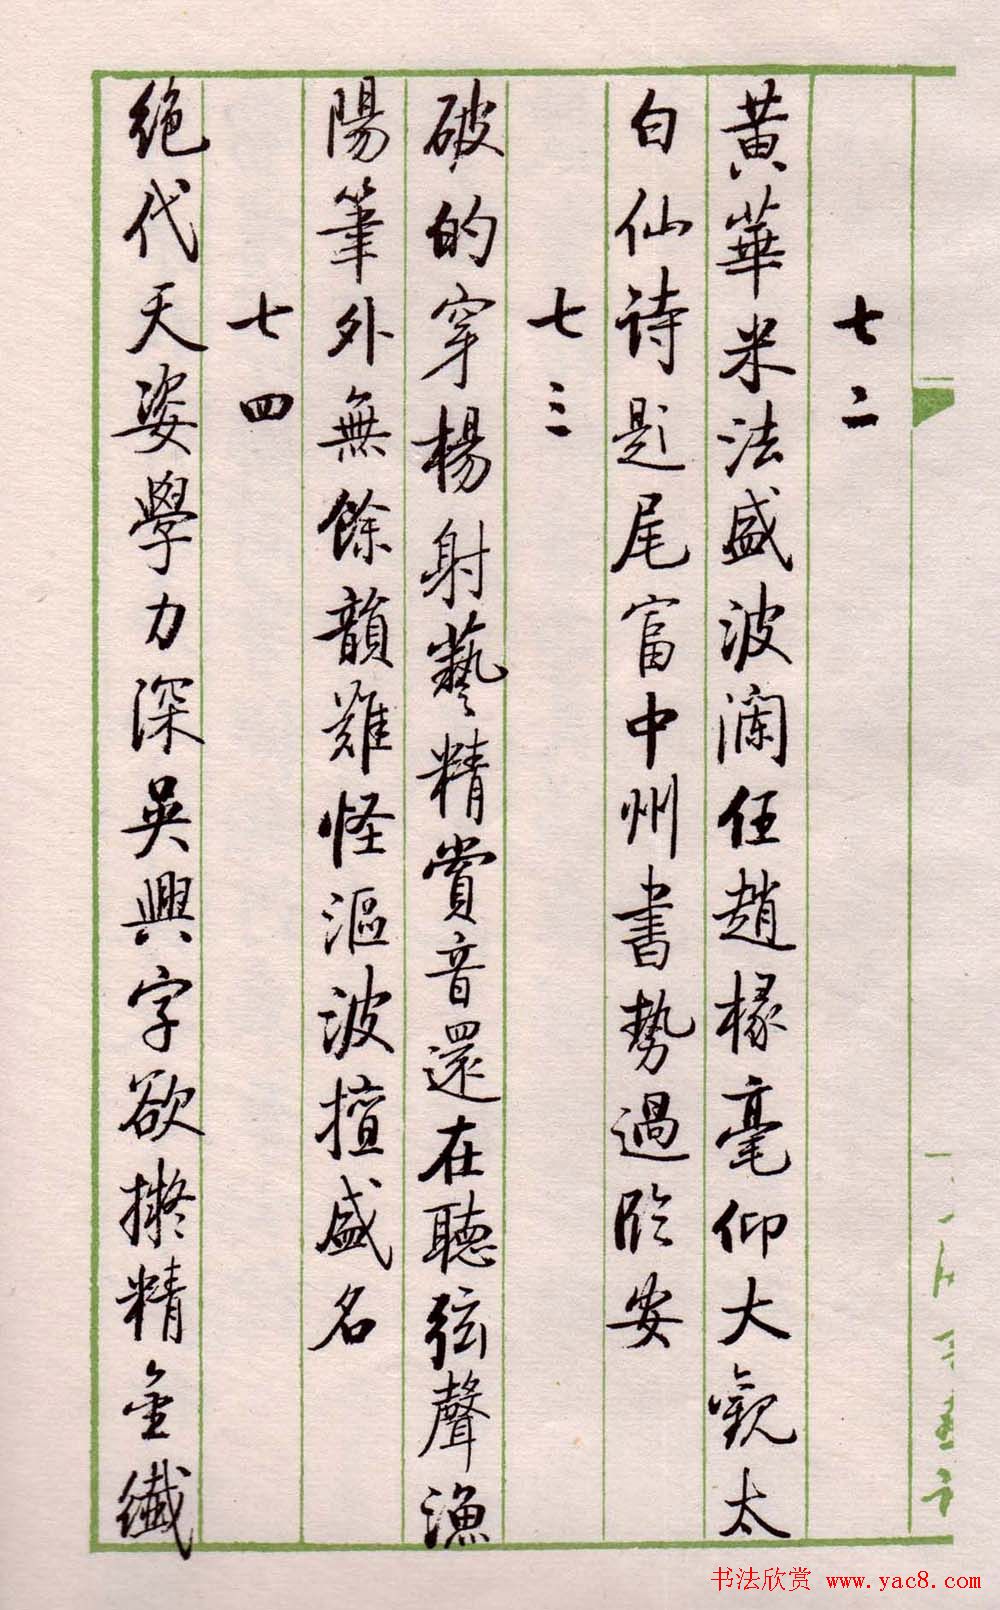 七二
黃華米法盛波澜任趙椽毫仰大觀太
白仙诗题尾富中州書勢過臨安
七三
破的穿楊射藝精賞音還在聽弦聲漁
陽筆外無餘韻難怪漚波擅盛名
七四
絶代天姿學力深吳興字欲擬精金纖
书法欣赏 www.yac8.com